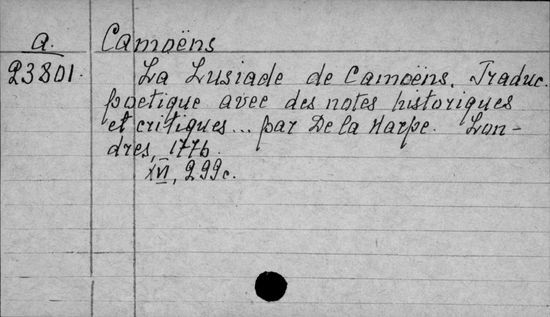 a. Camoëns
23801. La Lusiade de Camoëns. Traduc.
poetique avec des notes historiques
et critiques... par De la Harpe. Lon-
dres, 1776.
XVI, 299c.